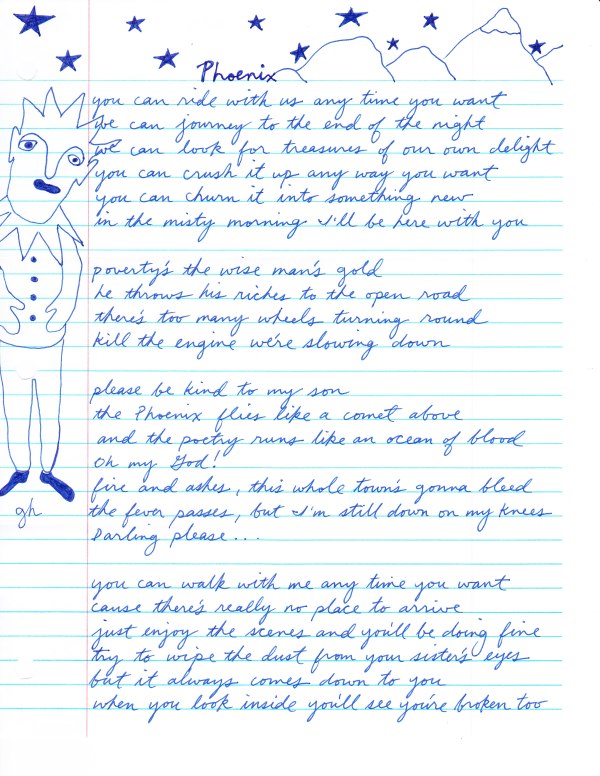 Phoenix
you can ride with us any time you want
we can journey to the end of the night
we can look for treasures of our own delight
you can crush it up any way you want
you can churn it into something new
in the misty morning I'll be here with you
poverty's the wise man's gold
he throws his riches to the open road
there's too many wheels turning round
kill the engine we're slowing down
please be kind to my son
the Phoenix flies like a comet above
and the poetry runs like an ocean of blood
Oh my God!
fire and ashes, this whole town's gonna bleed
the fever passes, but I'm still down on my knees
Darling please...
you can walk with me any time you want
cause there's really no place to arrive
just enjoy the scenes and you'll be doing fine
try to wipe the dust from your sister's eyes
but it always comes down to you
when you look inside you'll see you're broken too
gh